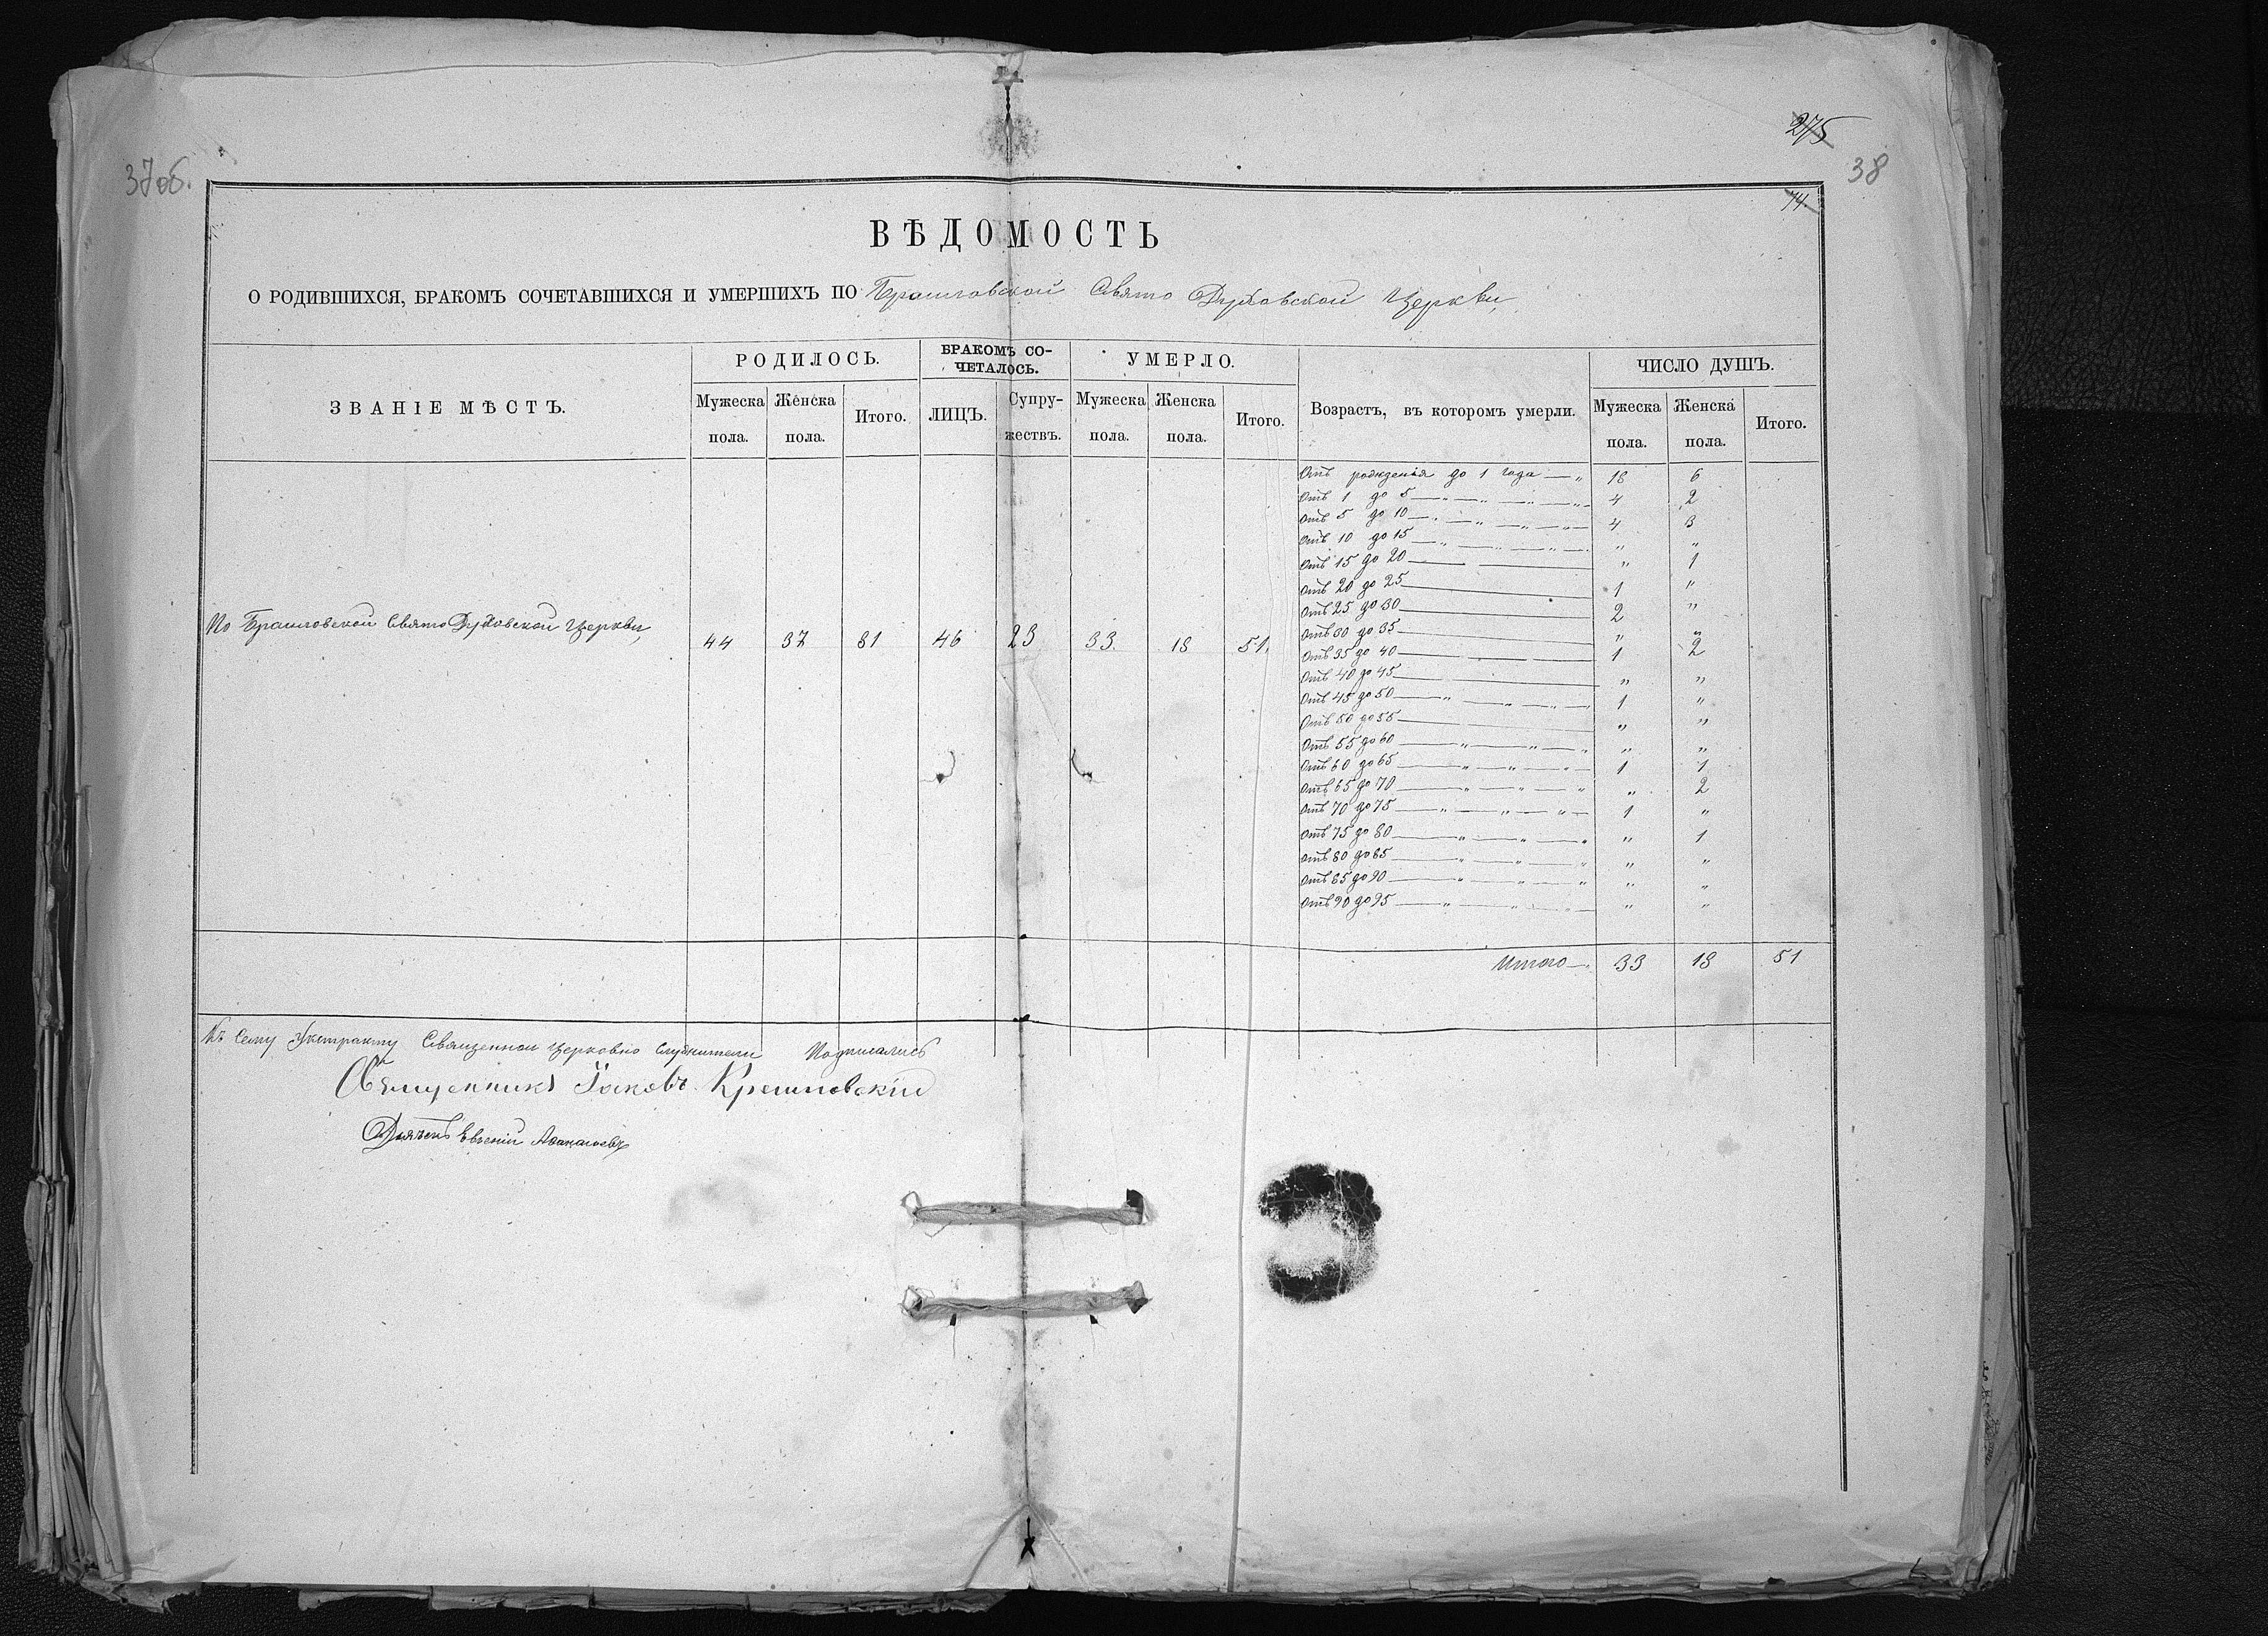 275
37об.
38
74.
ВѢДОМОСТЬ
О РОДИВШИХСЯ, БРАКОМЪ СОЧЕТАВШИХСЯ И УМЕРШИХЪ ПО Браиловской Свято Духовской Церкви,
ЗВАНІЕ МѢСТЪ. РОДИЛОСЬ. БРАКОМЪ СОЧЕТАЛОСЬ. УМЕРЛО. Возрастъ, въ которомъ умерли. ЧИСЛО ДУШЪ.
Мужеска пола. Женска пола. Итого. ЛИЦЪ. Супружествъ. Мужеска пола. Женска пола. Итого. Мужеска пола. Женска пола. Итого.
По Браиловской Свято Духовской Церкви, 44 37 81 46 23 33. 18 51.
Отъ рожденія до 1 года — „ 18 6
Отъ 1 до 5 4 2
Отъ 5 до 10 4 3
Отъ 10 до 15 „ „
Отъ 15 до 20 „ 1
Отъ 20 до 25 1 „
Отъ 25 до 30 2 „
Отъ 30 до 35 „ „
Отъ 35 до 40 1 2
Отъ 40 до 45 „ „
Отъ 45 до 50 1 „
Отъ 50 до 55 „ „
Отъ 55 до 60 „ „
Отъ 60 до 65 1 1
Отъ 65 до 70 „ 2
Отъ 70 до 75 1 „
Отъ 75 до 80 „ 1
Отъ 80 до 85 „ „
Отъ 85 до 90 „ „
Отъ 90 до 95 „ „
Итого 33 18 51
Къ сему Экстракту Священном церковно служители Подписались
Священникъ Іаковъ
Дьячекъ Евгеній